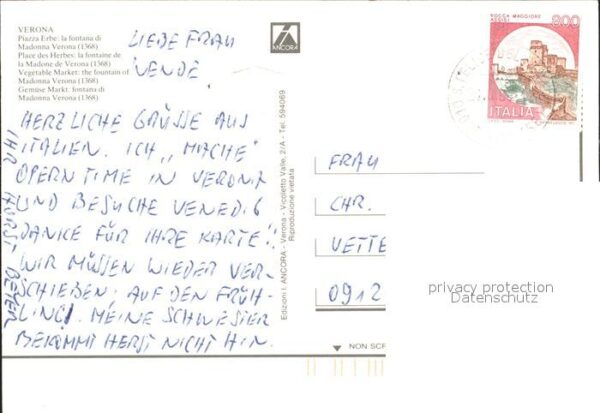 VERONA
Piazza Erbe: la fontana di
Madonna Verona (1368)
Place des Herbes: la fontaine de
la Madone de Verona (1368)
Vegetable Market: the fountain of
Madonna Verona (1368)
Gemüse Markt: fontana di
Madonna Verona (1368)
LIEBE FRAU
VENDE.
HERZLICHE GRÜSSE AUS
ITALIEN. ICH „MACHE"
OPERN TIME IN VERONA
UND BESUCHE VENEDIG
DANKE FÜR IHRE KARTE!
WIR MÜSSEN WIEDER VER-
SCHIEBEN: AUF DEN FRÜH-
LING! MEINE SCHWESTER
BEKOMMT HERBST NICHT HIN.
IHR HORST
ANCORA
Edizioni: ANCORA - Verona - Vicoletto Valle, 2/A - Tel. 594069
Riproduzione vietata
ROCCA MAGGIORE
ASSISI
800
ITALIA
FRAU
CHR.
VETTE
0912
privacy protection
Datenschutz
NON SCR